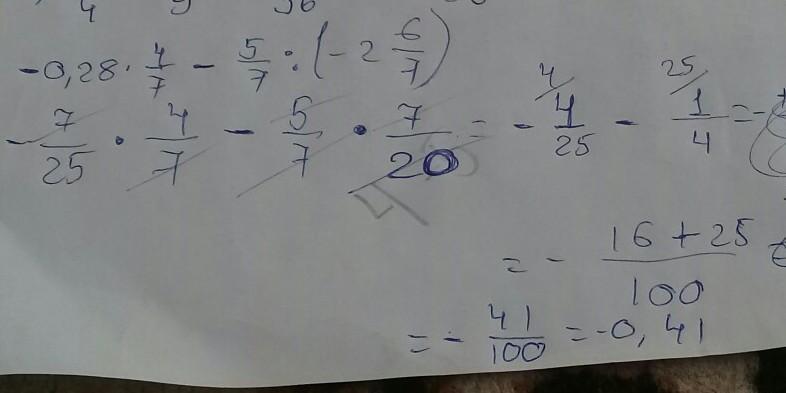 -0,28 · 4/7 - 5/7 : (-2 6/7)
-7/25 · 4/7 - 5/7 · 7/20 = - 4/25 - 1/4 = -
4 25
4
= - 16+25/100
= - 41/100 = -0,41